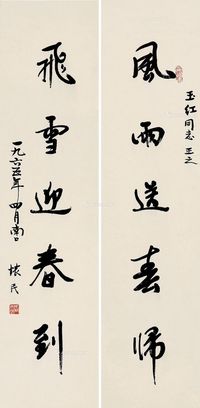 玉红同志正之
風雨送春歸
飛雪迎春到
一九六五年四月
懷民